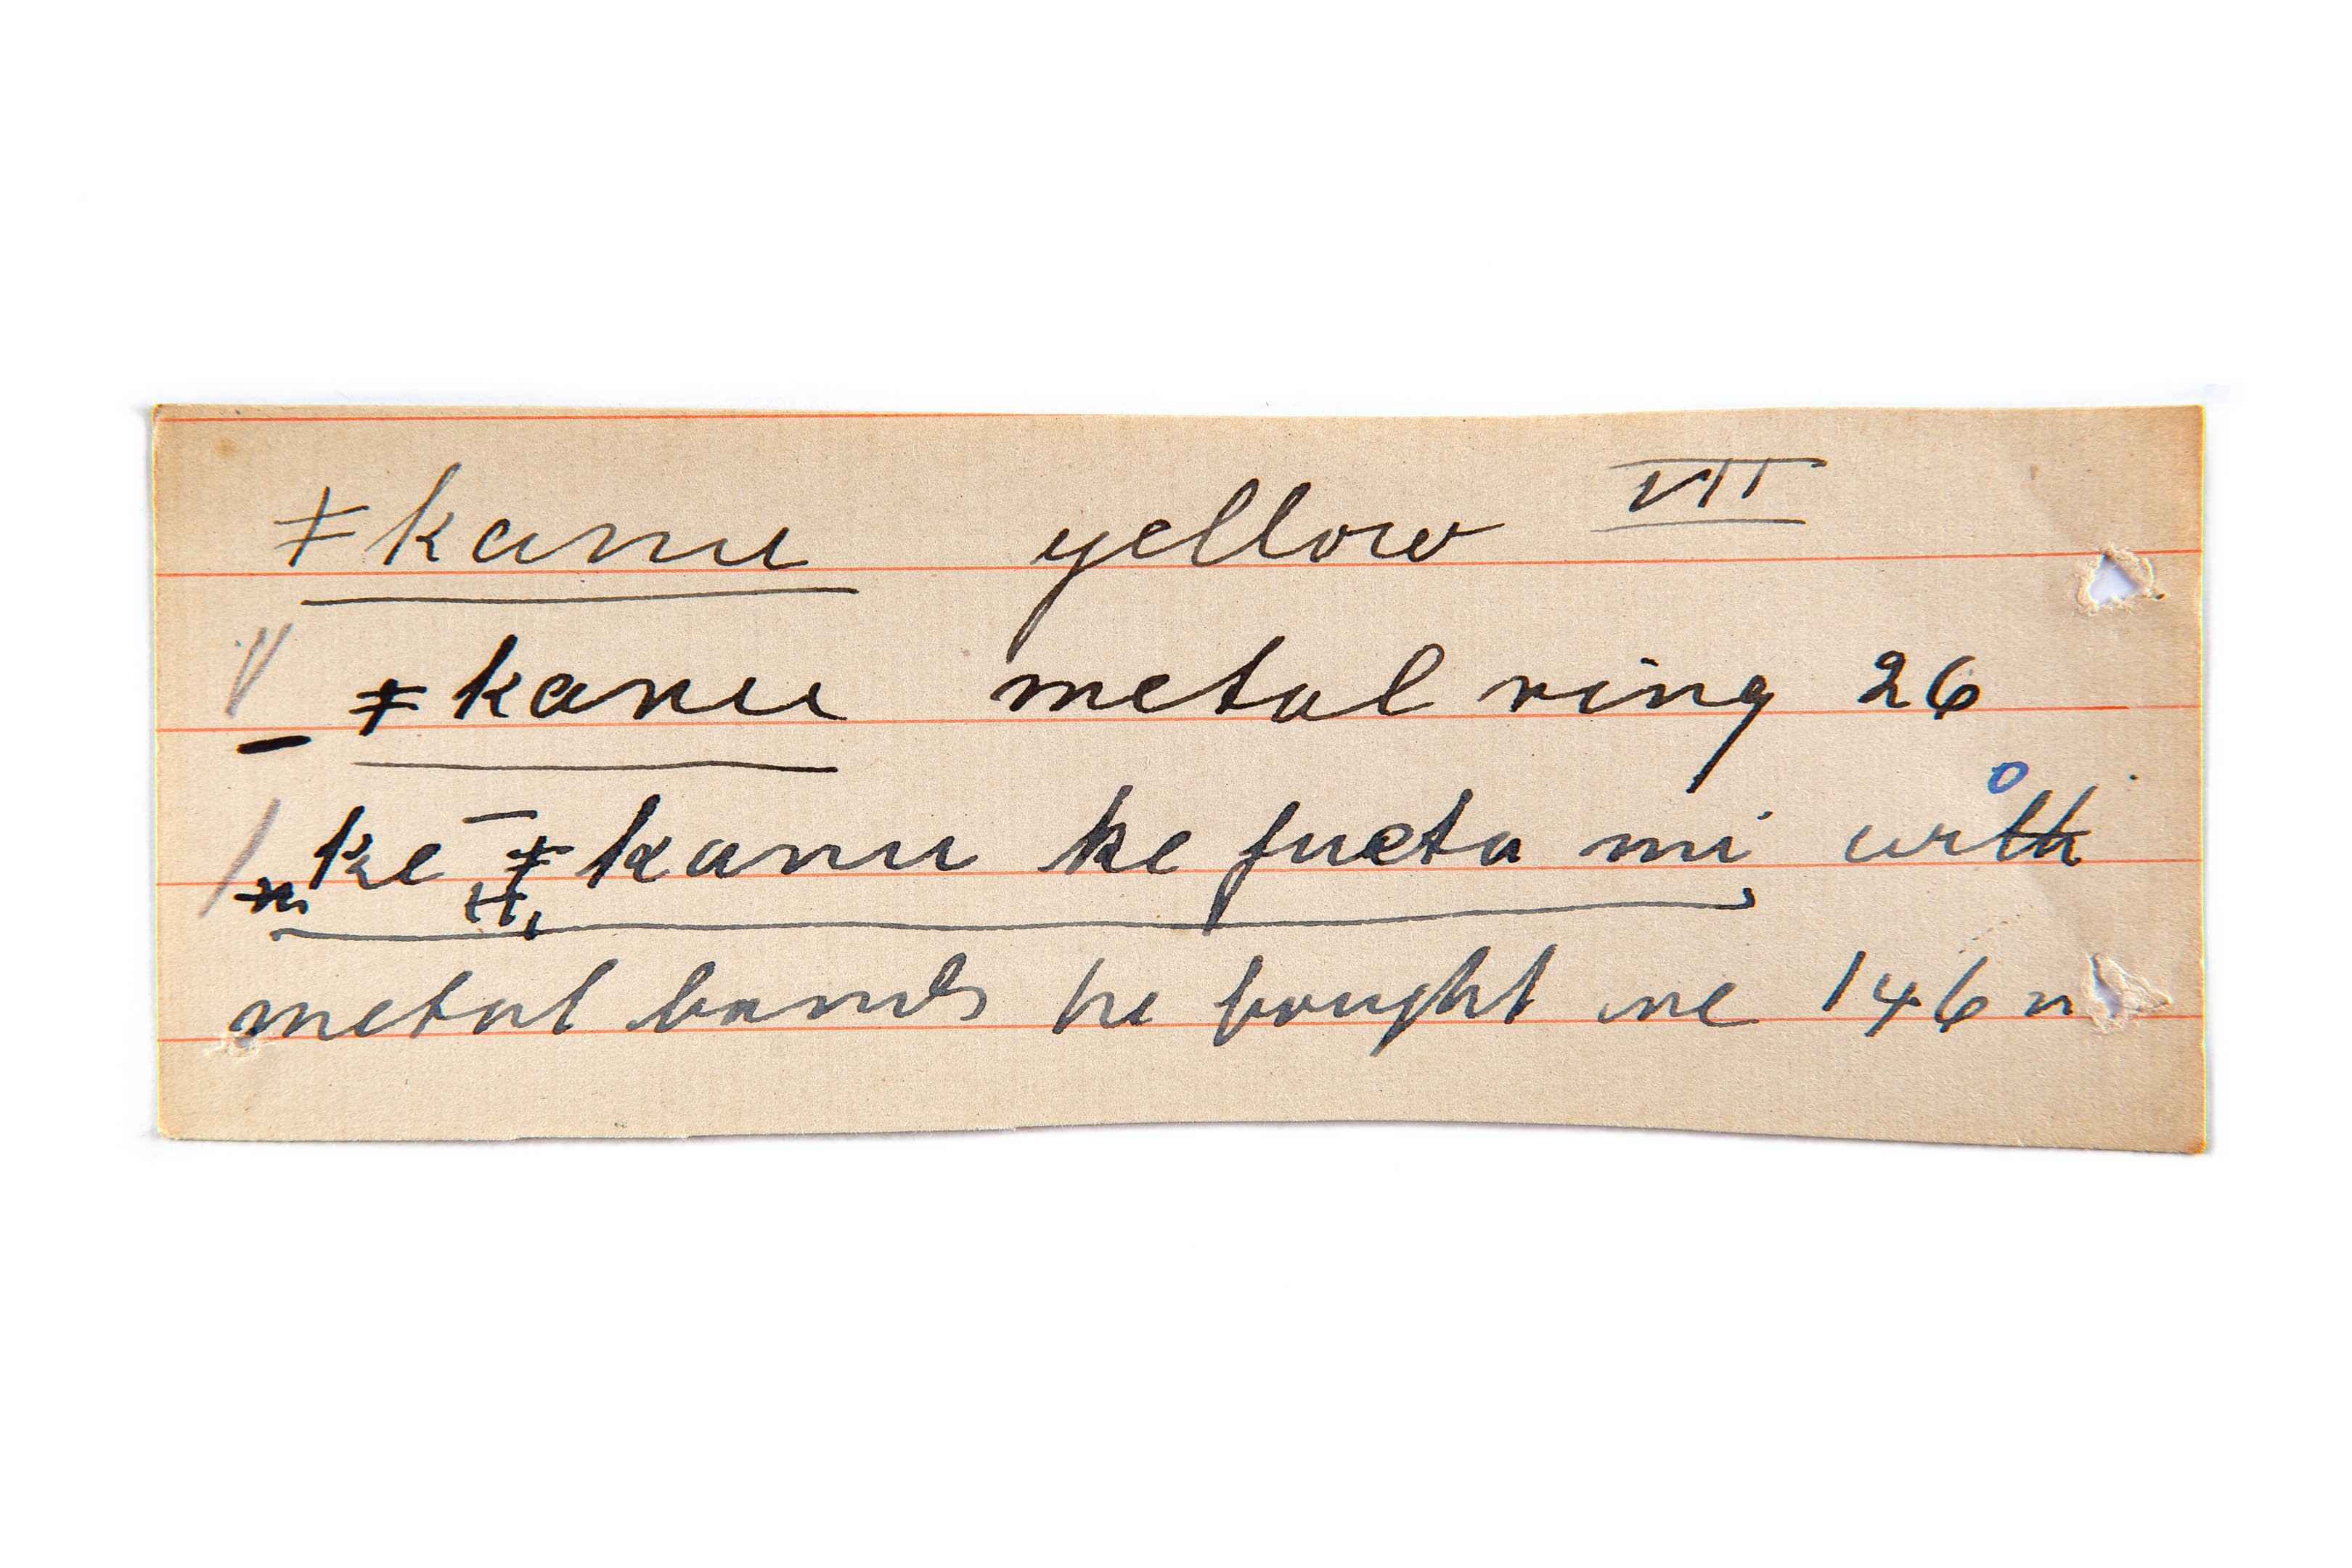 ǂkanu yellow VII
– ǂkanu metal ring 26
ke ǂkanu ke fueta mi with
metal bands he bought me 146